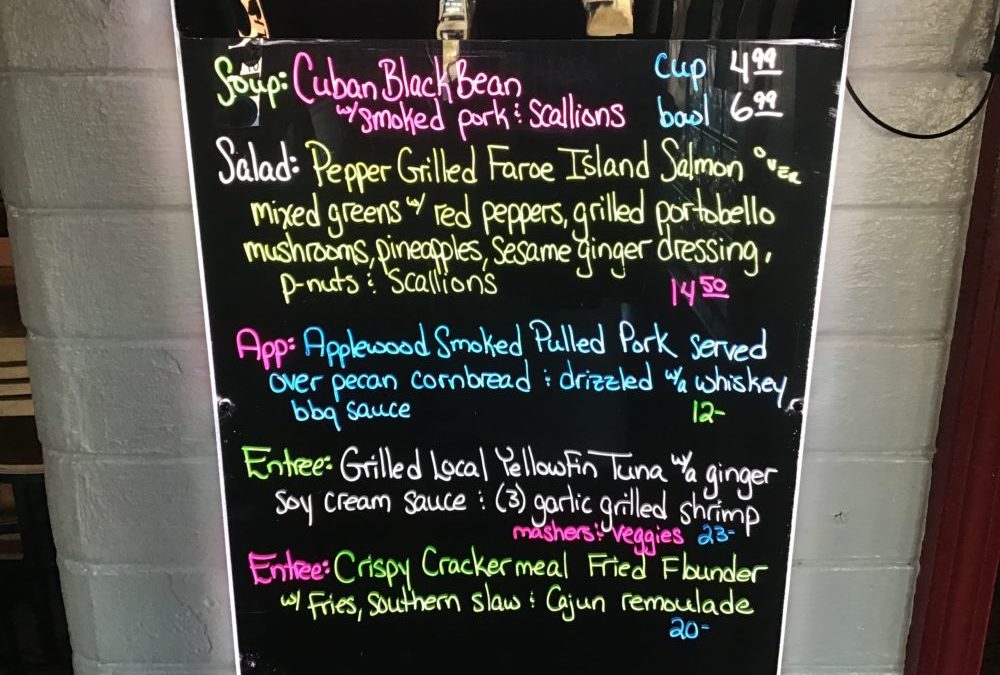 Soup: Cuban Black Bean cup 4.99
w/ smoked pork & scallions bowl 6.99
Salad: Pepper Grilled Faroe Island Salmon over
mixed greens w/ red peppers, grilled portobello
mushrooms, pineapples, sesame ginger dressing,
p-nuts & scallions 14.50
App: Applewood Smoked Pulled Pork served
over pecan cornbread & drizzled w/a whiskey
bbq sauce 12-
Entree: Grilled Local Yellowfin Tuna w/a ginger
soy cream sauce & (3) garlic grilled shrimp
mashers & veggies 23-
Entree: Crispy Crackermeal Fried Flounder
w/ Fries, Southern slaw & Cajun remoulade
20-